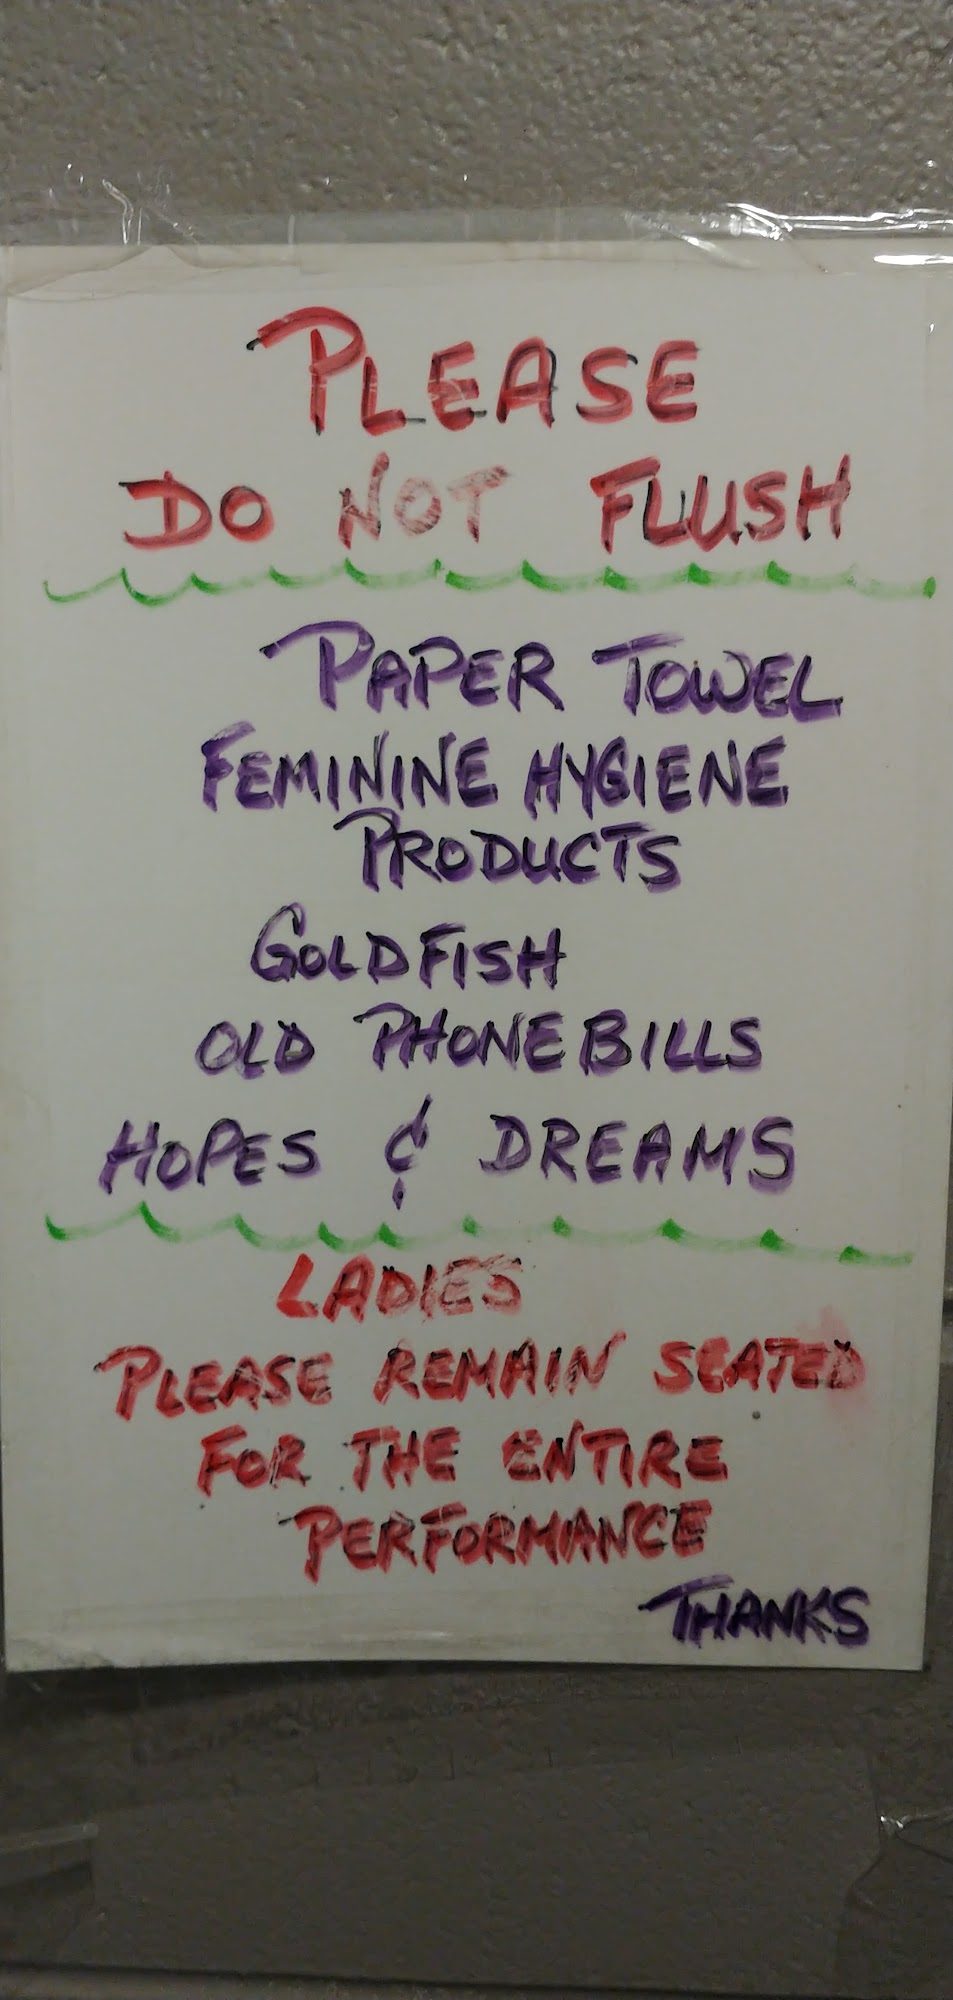 PLEASE
DO NOT FLUSH
PAPER TOWEL
FEMININE HYGIENE
PRODUCTS
GOLDFISH
OLD PHONE BILLS
HOPES & DREAMS
LADIES
PLEASE REMAIN SEATED
FOR THE ENTIRE
PERFORMANCE
THANKS